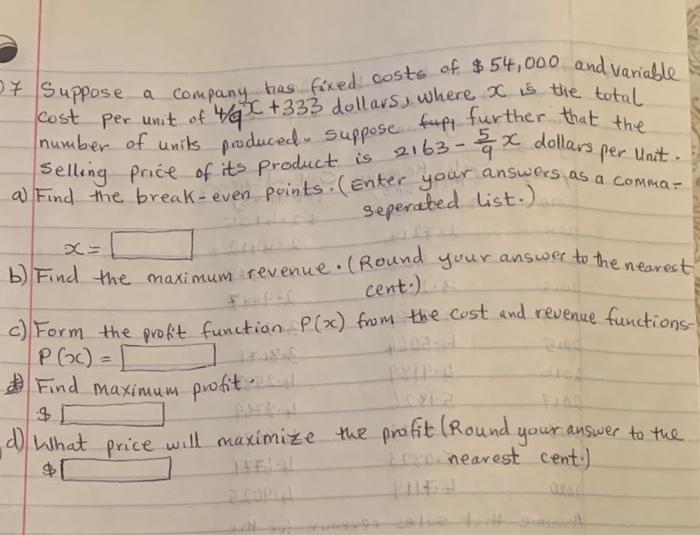 07 Suppose a company has fixed costs of $54,000 and variable
cost per unit of 4/9x + 333 dollars, where x is the total
number of units produced. Suppose further that the
selling price of its product is 2163 - 5/9 x dollars per unit.
a) Find the break-even points. (Enter your answers as a comma-
seperated list.)
x =
b) Find the maximum revenue. (Round your answer to the nearest
cent.)
c) Form the profit function P(x) from the cost and revenue functions
P(x) =
Find maximum profit.
$
d) What price will maximize the profit (Round your answer to the
nearest cent.)
$